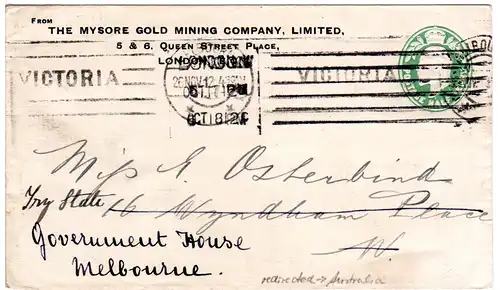 FROM
THE MYSORE GOLD MINING COMPANY, LIMITED,
5 & 6, QUEEN STREET PLACE,
LONDON
VICTORIA
VICTORIA
Miss E Osterbind
Try State
16 Wyndham Place
W.
Government House
Melbourne.
redirected → Australia